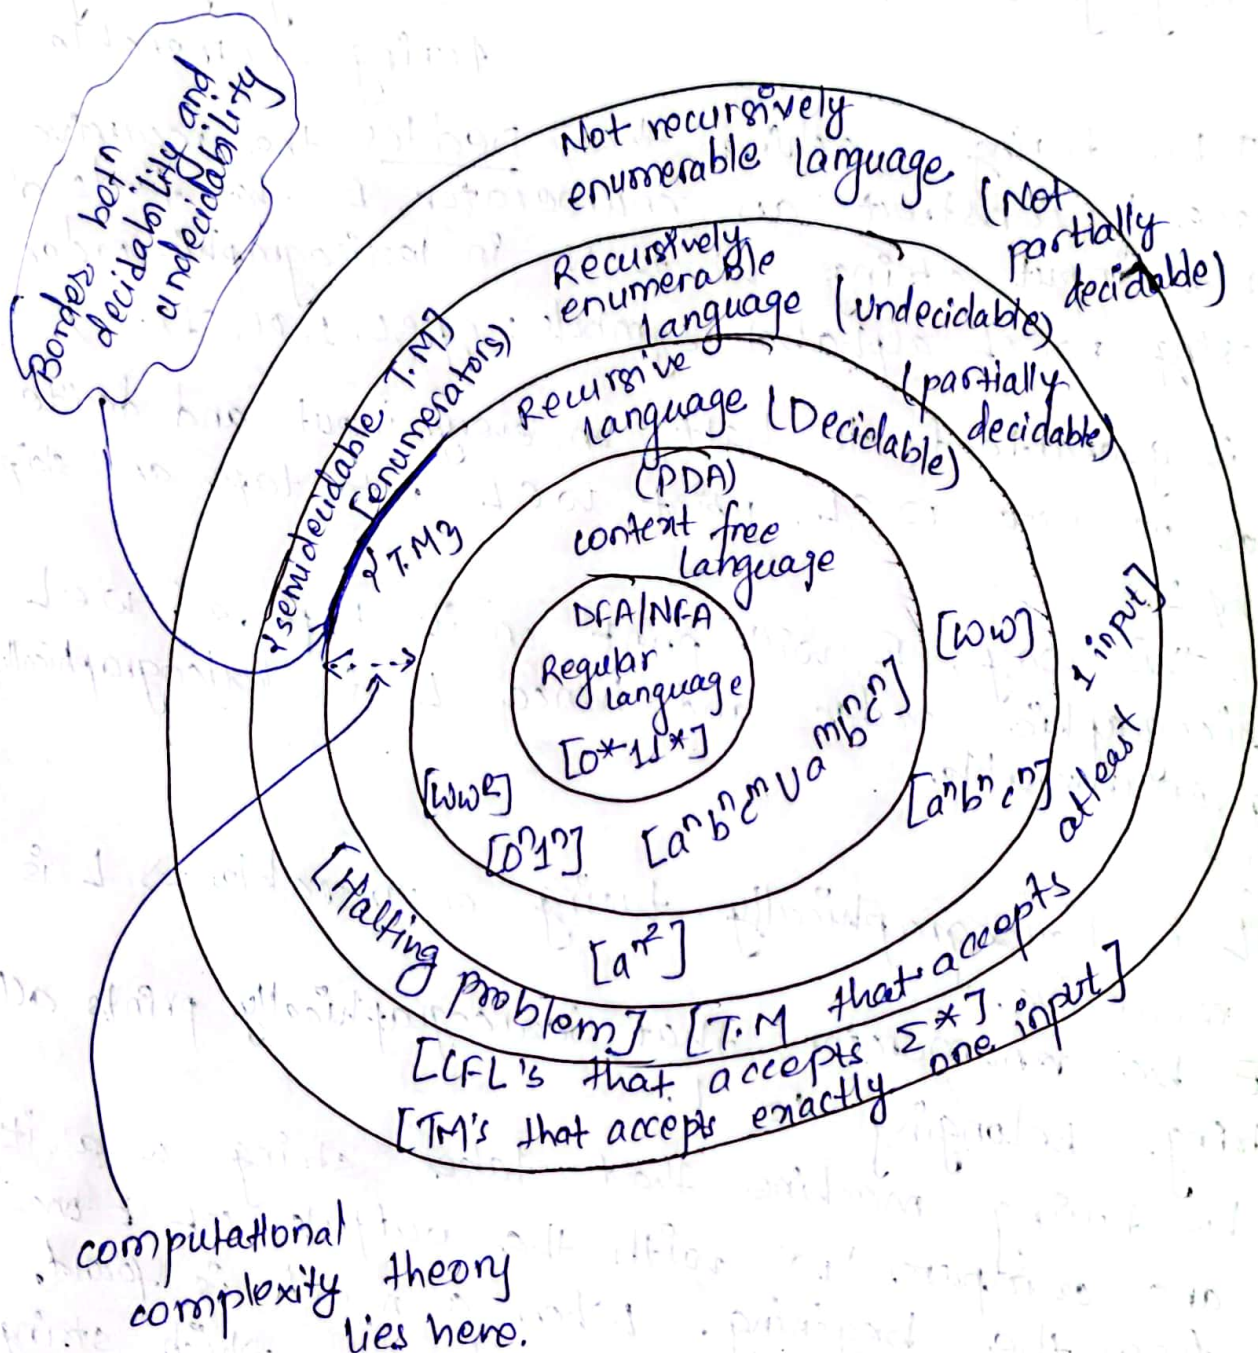 Border betn
decidability and
undecidability
Not recursively
enumerable language (Not
partially
decidable)
Recursively
enumerable
language (undecidable)
(partially
decidable)
{semidecidable T.M}
[enumerators]
Recursive
language (Decidable)
{T.M}
(PDA)
context free
language
DFA/NFA
Regular
language
[0*11*]
[ww]
[wwᴿ]
[0ⁿ1ⁿ]
[aⁿbⁿcᵐ ∪ aᵐbⁿcⁿ]
[aⁿbⁿcⁿ]
[aⁿ²]
[Halting problem]
[T.M that accepts atleast 1 input]
[CFL's that accepts Σ*]
[TM's that accepts exactly one input]
computational
complexity theory
lies here.